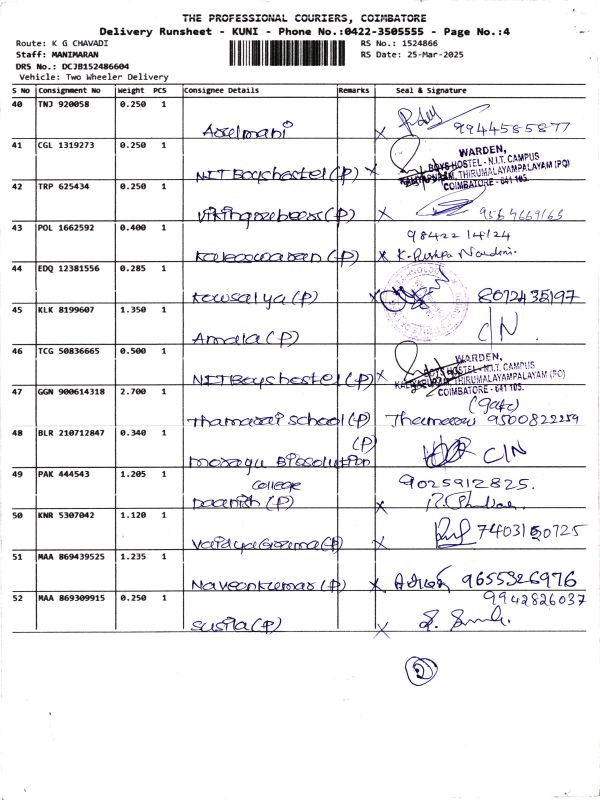 THE PROFESSIONAL COURIERS, COIMBATORE
Delivery Runsheet - KUNI - Phone No.:0422-3505555 - Page No.:4
Route: K G CHAVADI
Staff: MANIMARAN
DRS No.: DCJB152486604
Vehicle: Two Wheeler Delivery
RS No.: 1524866
RS Date: 25-Mar-2025
S No Consignment No Weight PCS Consignee Details Remarks Seal & Signature
40 TNJ 920058 0.250 1
Asselmani X 9944585877
41 CGL 1319273 0.250 1
NIT Boys hostel (P) X
WARDEN,
BOYS HOSTEL - N.I.T. CAMPUS
KALIYAPURAM, THIRUMALAYAMPALAYAM (PO)
COIMBATORE - 641 105.
42 TRP 625434 0.250 1
(P) X 9567669163
43 POL 1662592 0.400 1
98422 14124
(P) X K.
44 EDQ 12381556 0.285 1
Kowsalya (P) X 8072435197
45 KLK 8199607 1.350 1
Amala (P) C/N.
46 TCG 50836665 0.500 1
NIT Boys hostel (P) X
WARDEN,
BOYS HOSTEL - N.I.T. CAMPUS
KALIYAPURAM, THIRUMALAYAMPALAYAM (PO)
COIMBATORE - 641 105.
47 GGN 900614318 2.700 1
(gate)
Thamarai school (P) Thamarai 9500822259
48 BLR 210712847 0.340 1
(P)
Biosolution C/N
49 PAK 444543 1.205 1
college 9025912825.
Daanish (P) X
50 KNR 5307042 1.120 1
Vaidyagrama (P) X 7403150725
51 MAA 869439525 1.235 1
Naveenkumar (P) X 9655326976
52 MAA 869309915 0.250 1
9942826037
Susila (P) X